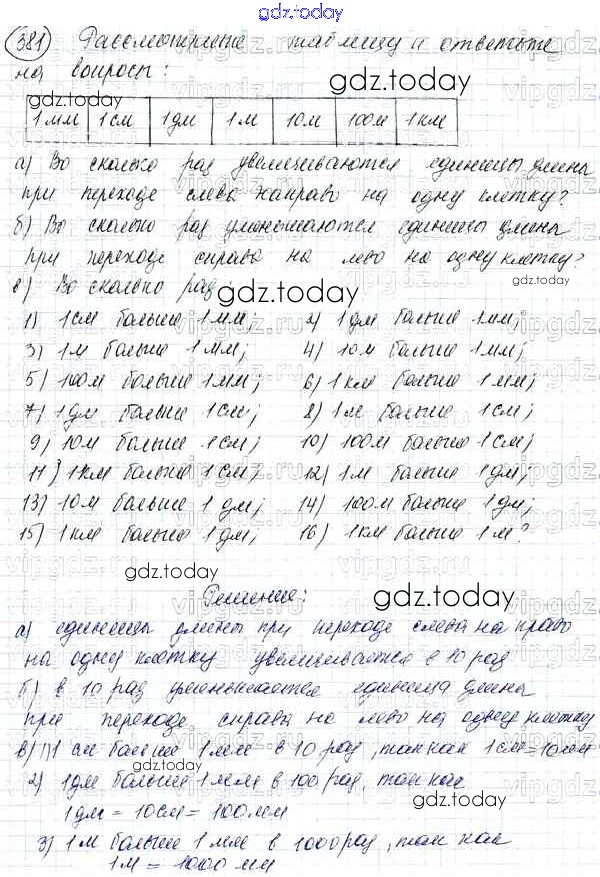 gdz.today
381 Рассмотрите таблицу и ответьте
на вопросы:
gdz.today gdz.today
1мм 1см 1дм 1м 10м 100м 1км
а) Во сколько раз увеличиваются единицы длины
при переходе слева направо на одну клетку?
б) Во сколько раз уменьшаются единицы длины
при переходе справа на лево на одну клетку?
в) Во сколько раз
gdz.today
1) 1см больше 1мм; 2) 1дм больше 1мм;
3) 1м больше 1мм; 4) 10м больше 1мм;
5) 100м больше 1мм; 6) 1км больше 1мм;
7) 1дм больше 1см; 8) 1м больше 1см;
9) 10м больше 1см; 10) 100м больше 1см;
11) 1км больше 1см; 12) 1м больше 1дм;
13) 10м больше 1дм; 14) 100м больше 1дм;
15) 1км больше 1дм; 16) 1км больше 1м?
gdz.today
Решение:
gdz.today
а) единицы длины при переходе слева на право
на одну клетку увеличивается в 10 раз
б) в 10 раз уменьшается единица длины
при переходе справа на лево на одну клетку
в) 1) 1 см больше 1мм в 10 раз, так как 1см=10мм
2) 1дм больше 1мм в 100 раз, так как
gdz.today
1дм = 10см = 100мм
3) 1м больше 1мм в 1000 раз, так как
1м = 1000 мм